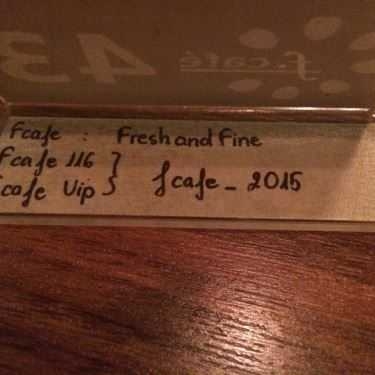 f.café 43
Fcafe : Fresh and Fine
Fcafe 116 }
cafe Vip } fcafe_2015